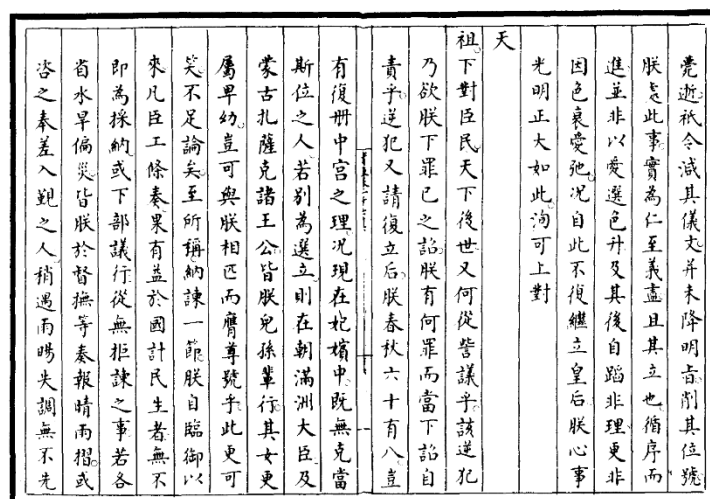 薨逝祇令減其儀文并未降明旨削其位號
朕處此事實為仁至義盡且其立也循序而
進並非以愛選色升及其後自蹈非理更非
因色衰愛弛况自此不復繼立皇后朕心事
光明正大如此洵可上對
天
祖下對臣民天下後世又何從訾議乎該逆犯
乃欲朕下罪已之詔朕有何罪而當下詔自
責乎逆犯又請復立后朕春秋六十有八豈
有復册中宮之理况現在妃嬪中既無克當
斯位之人若别為選立則在朝滿洲大臣及
蒙古扎薩克諸王公皆朕兒孫輩行其女更
屬卑幼豈可與朕相匹而膺尊號乎此更可
笑不足論矣至所稱納諫一節朕自臨御以
來凡臣工條奏果有益於國計民生者無不
即為採納或下部議行從無拒諫之事若各
省水旱偏災皆朕於督撫等奏報晴雨摺或
咨之奉差入覲之人稍遇雨暘失調無不先